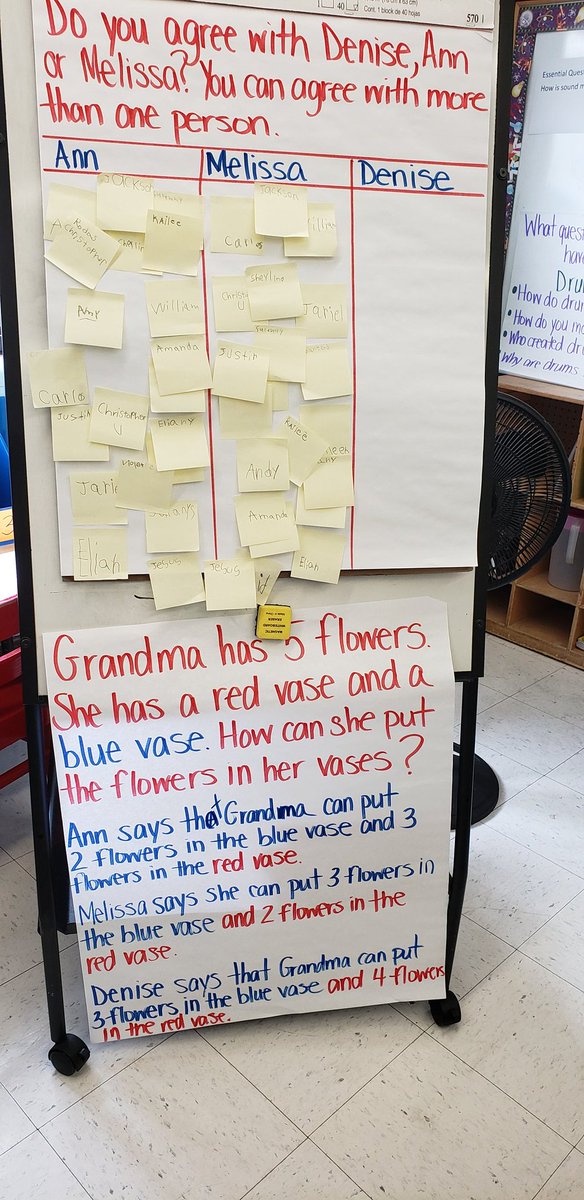 Cont. 1 block de 40 hojas
570
Do you agree with Denise, Ann
or Melissa? You can agree with more
than one person.
Ann Melissa Denise
Jackson
Kailee
Rodas
Christopher
Amy
William
Amanda
Carlos
Justin
Christopher
U
Eliany
Jarie
Elian
Jesus
Jackson
Carlos
Sherlina
Christo
U
Jariel
Justin
Kailee
Andy
Amanda
Jesus
Elian
Grandma has 5 flowers.
She has a red vase and a
blue vase. How can she put
the flowers in her vases?
Ann says that Grandma can put
2 flowers in the blue vase and 3
flowers in the red vase.
Melissa says she can put 3 flowers in
the blue vase and 2 flowers in the
red vase.
Denise says that Grandma can put
3 flowers in the blue vase and 4 flowers
in the red vase.
Essential Ques
How is sound m
What quest
have
Dru
•How do drum
•How do you ma
•Who created dr
Why are drums